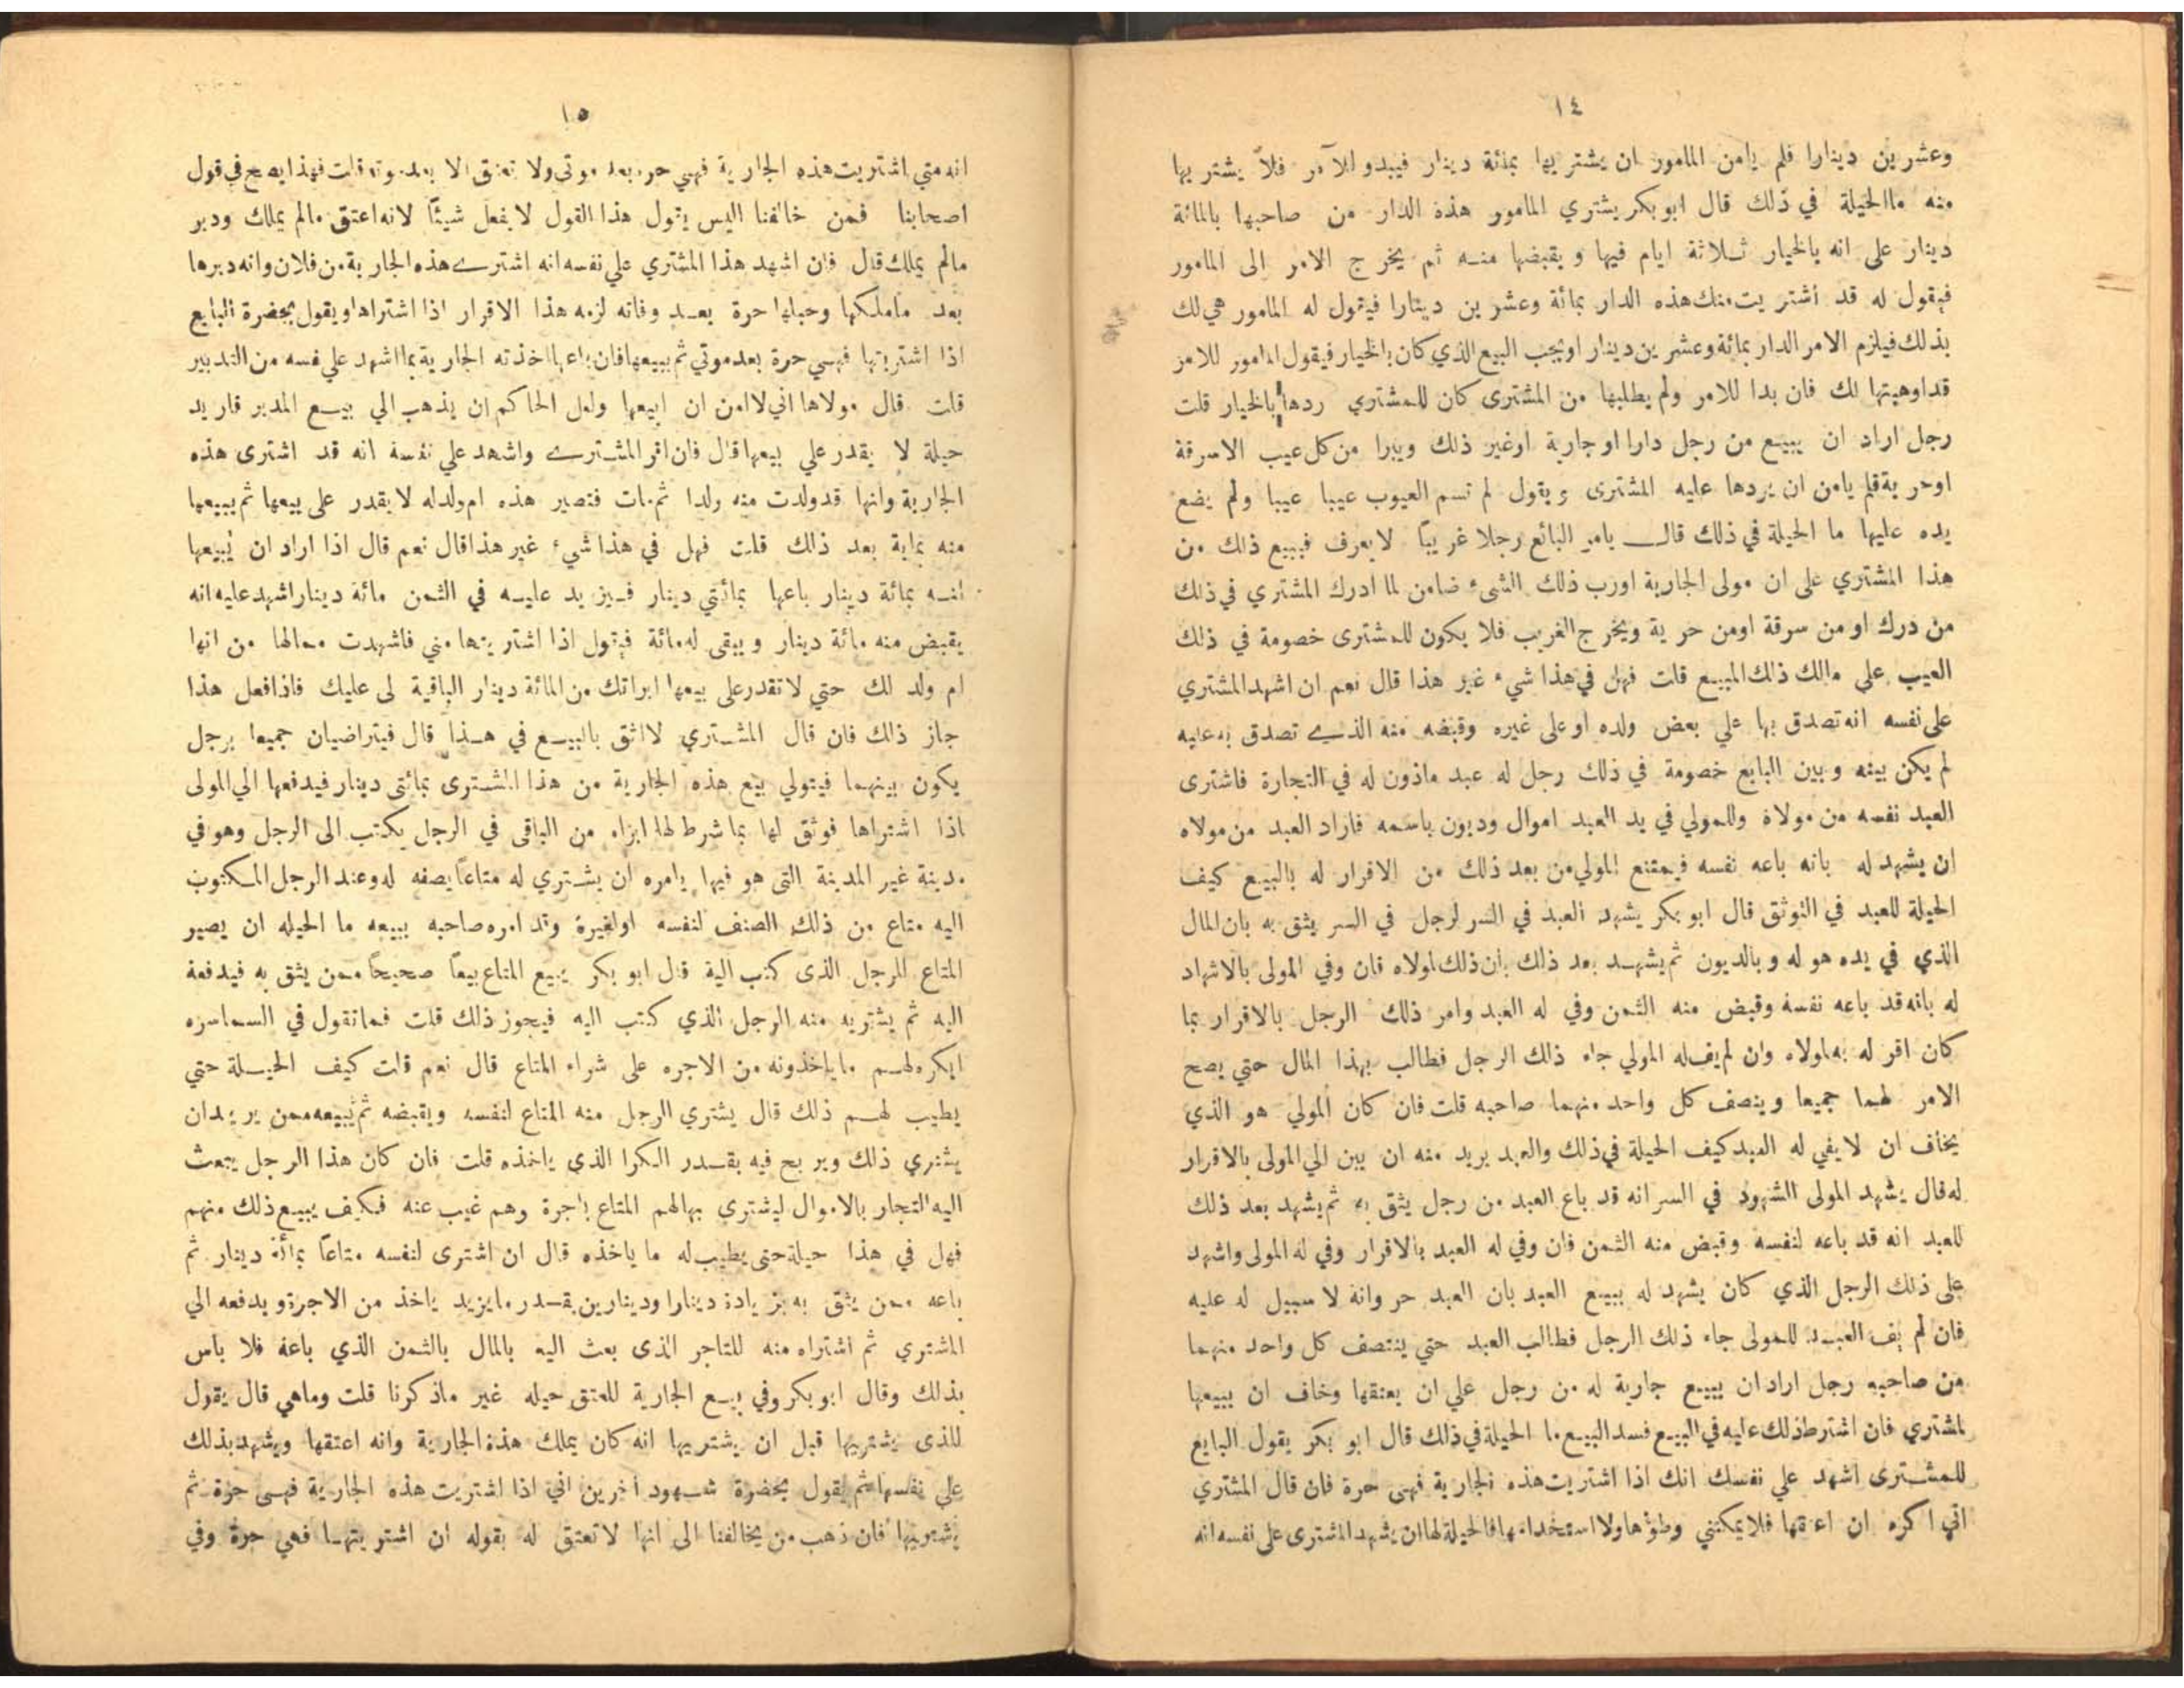 ١٤
وعشرين دينارا فلم يامن المامور ان يشتريها بمائة دينار فيبدو للآمر فلا يشتريها
منه ماالحيلة في ذلك قال ابو بكر يشتري المامور هذة الدار من صاحبها بالمائة
دينار على انه بالخيار ثلاثة ايام فيها و يقبضها منه ثم يخرج الامر الى المامور
فيقول له قد أشتريت منك هذه الدار بمائة وعشرين دينارا فيقول له المامور هي لك
بذلك فيلزم الامر الدار بمائة وعشرين دينار اويجب البيع الذي كان بالخيار فيقول المامور للامر
قداوهبتها لك فان بدا للامر ولم يطلبها من المشترى كان للمشتري ردها بالخيار قلت
رجل اراد ان يبيع من رجل دارا او جارية اوغير ذلك ويبرا من كل عيب الاسرقة
اوحرية فلم يامن ان يردها عليه المشترى ويقول لم تسم العيوب عيبا عيبا ولم يضع
يده عليها ما الحيلة في ذلك قال يامر البائع رجلا غريبًا لا يعرف فيبيع ذلك من
هذا المشتري على ان مولى الجارية اورب ذلك الشىء ضامن لما ادرك المشتري في ذلك
من درك او من سرقة اومن حرية ويخرج الغريب فلا يكون للمشترى خصومة في ذلك
العيب على مالك ذلك المبيع قلت فهل في هذا شيء غير هذا قال نعم ان اشهد المشتري
على نفسه انه تصدق بها علي بعض ولده او على غيره وقبضه منه الذي تصدق به عليه
لم يكن بينه وبين البايع خصومة في ذلك رجل له عبد ماذون له في التجارة فاشترى
العبد نفسه من مولاة وللمولي في يد العبد اموال وديون باسمه فاراد العبد من مولاه
ان يشهد له بانه باعه نفسه فيمتنع المولي من بعد ذلك من الاقرار له بالبيع كيف
الحيلة للعبد في التوثق قال ابو بكر يشهد العبد في السر لرجل في السر يثق به بان المال
الذي في يده هو له و بالديون ثم يشهد بعد ذلك بان ذلك لمولاه فان وفي المولى بالاشهاد
له بانه قد باعه نفسة وقبض منه الثمن وفي له العبد وامر ذلك الرجل بالاقرار بما
كان اقر له به لمولاه وان لم يف له المولي جاء ذلك الرجل فطالب بهذا المال حتي يصح
الامر لهما جميعا وينصف كل واحد منهما صاحبه قلت فان كان المولي هو الذي
يخاف ان لا يفي له العبد كيف الحيلة في ذلك والعبد يريد منه ان يبن الي المولى بالاقرار
له قال يشهد المولى الشهود في السر انه قد باع العبد من رجل يثق به ثم يشهد بعد ذلك
للعبد انه قد باعه لنفسة وقبض منه الثمن فان وفي له العبد بالاقرار وفي له المولى واشهد
على ذلك الرجل الذي كان يشهد له ببيع العبد بان العبد حر وانة لا سبيل له عليه
فان لم يف العبد للمولى جاء ذلك الرجل فطالب العبد حتي ينتصف كل واحد منهما
من صاحبه رجل اراد ان يبيع جارية له من رجل علي ان يعتقها وخاف ان يبيعها
لمشتري فان اشترط ذلك عليه في البيع فسد البيع ما الحيلة في ذلك قال ابو بكر يقول البايع
للمشترى اشهد علي نفسك انك اذا اشتريت هذه الجارية فهى حرة فان قال المشتري
اني اكره ان اعتقها فلا يمكنني وطؤها ولا استخدامها فالحيلة لها ان يشهد المشترى على نفسه انه
١٥
انه متي اشتريت هذه الجارية فهي حره بعد موتى ولا تعتق الا بعد موته قلت فهذا يصح في قول
اصحابنا فمن خالفنا اليس يقول هذا القول لا يفعل شيئًا لانه اعتق مالم يملك ودبر
مالم يملك قال فان اشهد هذا المشتري علي نفسه انه اشترے هذه الجارية من فلان وانه دبرها
بعد ماملكها وجعلها حرة بعد وفاته لزمه هذا الاقرار اذا اشتراها ويقول بحضرة البايع
اذا اشتريتها فهي حرة بعد موتي ثم يبيعها فان باعها اخذته الجارية بما اشهد علي نفسه من التدبير
قلت قال مولاها اني لا امن ان ابيعها ولعل الحاكم ان يذهب الي بيع المدبر فاريد
حيلة لا يقدر علي بيعها قال فان اقر المشترے واشهد علي نفسة انه قد اشترى هذه
الجارية وانها قدولدت منه ولدا ثم مات فتصير هذه ام ولدله لا يقدر على بيعها ثم يبيعها
منه بماية بعد ذلك قلت فهل في هذا شيء غير هذا قال نعم قال اذا اراد ان يبيعها
منه بمائة دينار باعها بمائتي دينار فيزيد عليه في الثمن مائة دينار اشهد عليه انه
يقبض منه مائة دينار و يبقى له مائة فيقول اذا اشتريتها مني فاشهدت معالها من انها
ام ولد لك حتي لا تقدر على بيعها ابراتك من المائة دينار الباقية لى عليك فاذا فعل هذا
جاز ذلك فان قال المشتري لا اثق بالبيع في هذا قال فيتراضيان جميعا برجل
يكون بينهما فيتولي بيع هذه الجارية من هذا المشترى بمائتى دينار فيدفعها الي المولى
اذا اشتراها فوثق لها بما شرط لها ابراه من الباقى في الرجل يكتب الى الرجل وهو في
مدينة غير المدينة التى هو فيها يامره ان يشتري له متاعًا يصفه له وعند الرجل المكتوب
اليه متاع من ذلك الصنف لنفسه اولغيرة وقد امره صاحبه ببيعه ما الحيله ان يصير
المتاع للرجل الذى كتب الية قال ابو بكر يبيع المتاع بيعًا صحيحًا ممن يثق به فيدفعة
اليه ثم يشتريه منه الرجل الذي كتب اليه فيجوز ذلك قلت فما تقول في السماسره
ايكره لهم ما ياخذونه من الاجره على شراء المتاع قال نعم قلت كيف الحيلة حتي
يطيب لهم ذلك قال يشتري الرجل منه المتاع لنفسه ويقبضه ثم يبيعه ممن يريد ان
يشتري ذلك ويربح فيه بقدر الكرا الذي ياخذه قلت فان كان هذا الرجل يبعث
اليه التجار بالاموال ليشتري بها لهم المتاع باجرة وهم غيب عنه فكيف يبيع ذلك منهم
فهل في هذا حيلة حتى يطيب له ما ياخذه قال ان اشترى لنفسه متاعًا بمائة دينار ثم
باعه ممن يثق به بزيادة دينارا ودينارين بقدر ما يزيد ياخذ من الاجرة و يدفعه الي
المشتري ثم اشتراه منه للتاجر الذى بعث اليه بالمال بالثمن الذي باعه فلا باس
بذلك وقال ابو بكر وفي بيع الجارية للعتق حيله غير ماذكرنا قلت وماهي قال يقول
للذى يشتريها قبل ان يشتريها انه كان يملك هذة الجارية وانه اعتقها ويشهد بذلك
علي نفسها ثم يقول بحضرة شهود أخرين اني اذا اشتريت هذه الجارية فهى حرة ثم
يشتريها فان ذهب من يخالفنا الى انها لا تعتق له بقوله ان اشتريتها فهي حرة وفي